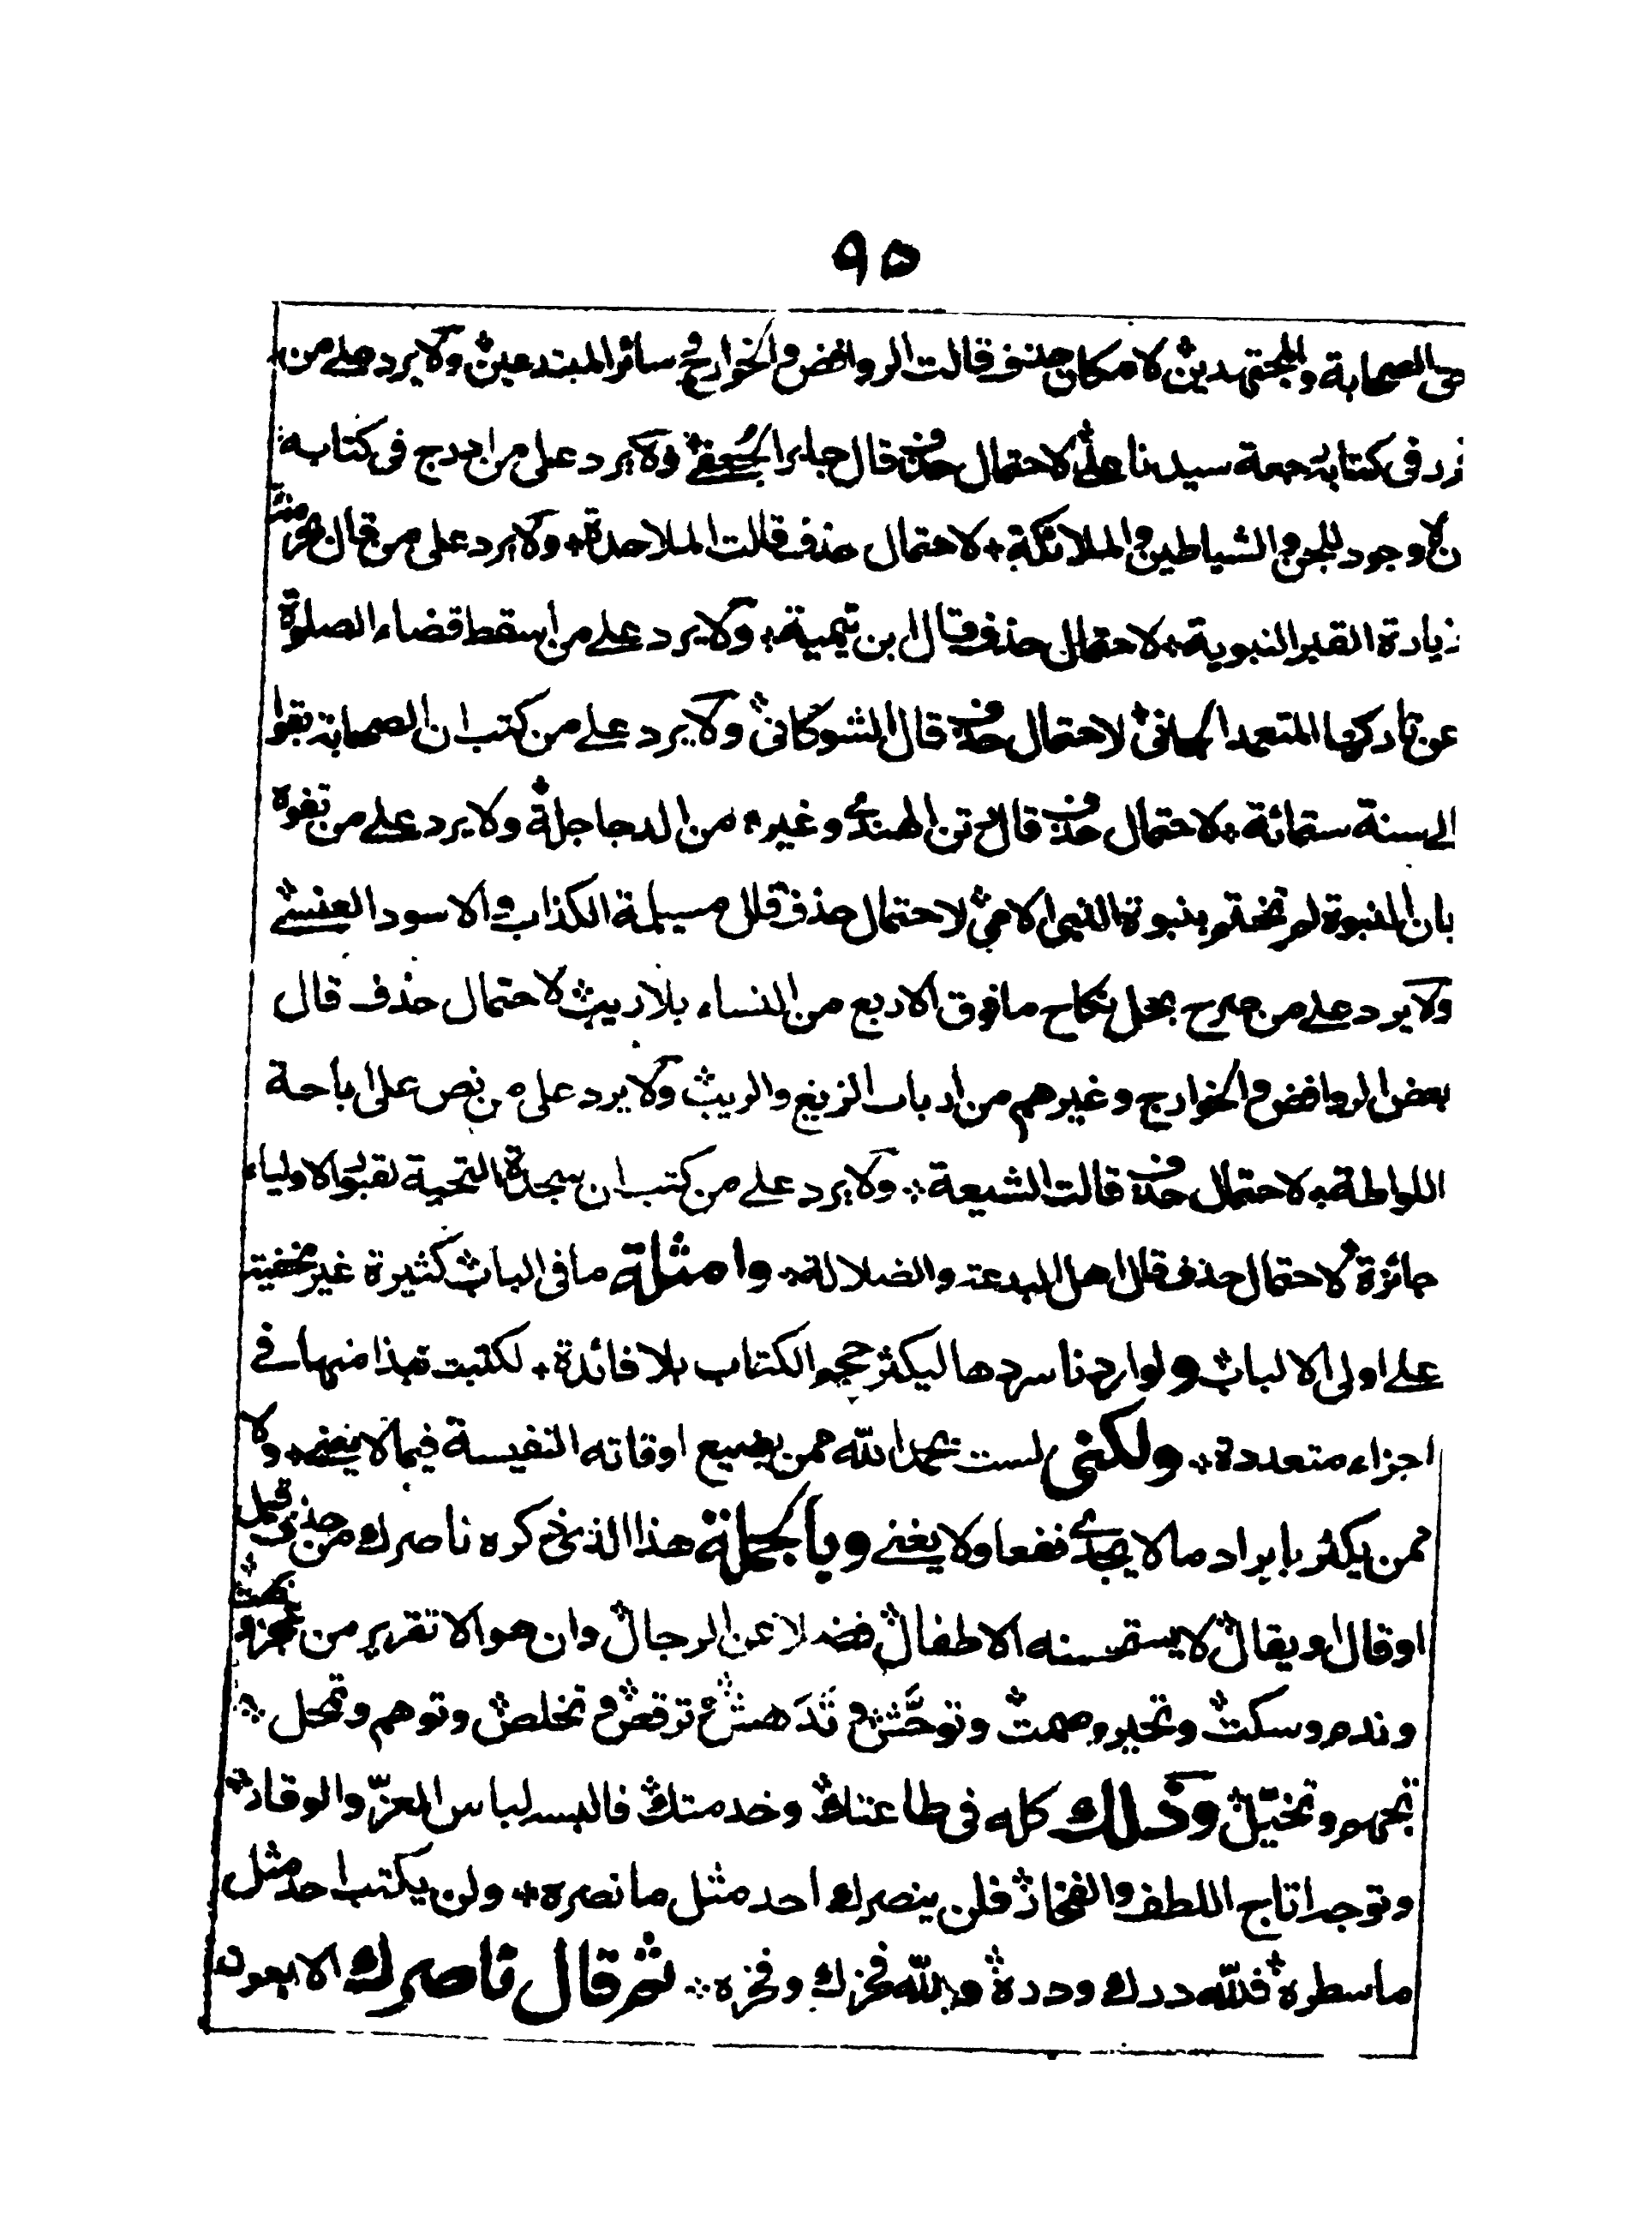 ٩٥
الصحابة والمجتهدين لامكان حذف قالت الروافض والخوارج وسائر المبتدعين ولا يرد على من
فى كتابه رجعة سيدنا على لاحتمال حذف قال جابر الجعفى ولا يرد على من ادرج فى كتابه
ان لا وجود للجن والشياطين والملائكة لاحتمال حذف قالت الملاحدة ولا يرد على من قال بحرمته
زيارة القبر النبوية لاحتمال حذف قال ابن تيمية ولا يرد على من اسقط قضاء الصلوة
عن تاركها المتعمد لاحتمال حذف قال الشوكانى ولا يرد على من كتب ان الصحابة بقوا
الى سنة ستمائة لاحتمال حذف قال رتن الهندى وغيره من الدجاجلة ولا يرد على من تفوه
بان النبوة لم تختم بنبوة النبى الامى لاحتمال حذف قال مسيلمة الكذاب والاسود العنسى
ولا يرد على من صرح بحل نكاح ما فوق الاربع من النساء بلا ريب لاحتمال حذف قال
بعض الروافض والخوارج وغيرهم من ارباب الزيغ والريب ولا يرد على من نص على اباحة
اللواطة لاحتمال حذف قالت الشيعة ولا يرد على من كتب ان سجدة التحية لقبور الاولياء
جائزة لاحتمال حذف قال اهل البدعة والضلالة وامثلة ما فى الباب كثيرة غير مخفية
على اولى الالباب ولو اردنا سردها ليكثر حجم الكتاب بلا فائدة لكتبت نبذا منها فى
اجزاء متعددة ولكنى لست بحمد الله ممن يضيع اوقاته النفيسة فيما لا يعنى ولا
ممن يكثر بايراد ما لا يجدى نفعا ولا يغنى وبالجملة هذا الذى ذكره ناصرك من حذف قيل
او قال او يقال لا يستحسنه الاطفال فضلا عن الرجال وان هو الا تقرير من عجز و
وندم وسكت وتحير وصمت وتوحش و تدهش و ترقص و تخلص وتوهم وتمحل
تجهم وتخيل وذلك كله فى طاعتك وخدمتك فالبسه لباس العز والوقار
وتوجه تاج اللطف والفخار فلن ينصرك احد مثل ما نصره ولن يكتب احد مثل
ما سطره فلله درك ودره ولله فخرك وفخره ثم قال ناصرك الا بعون